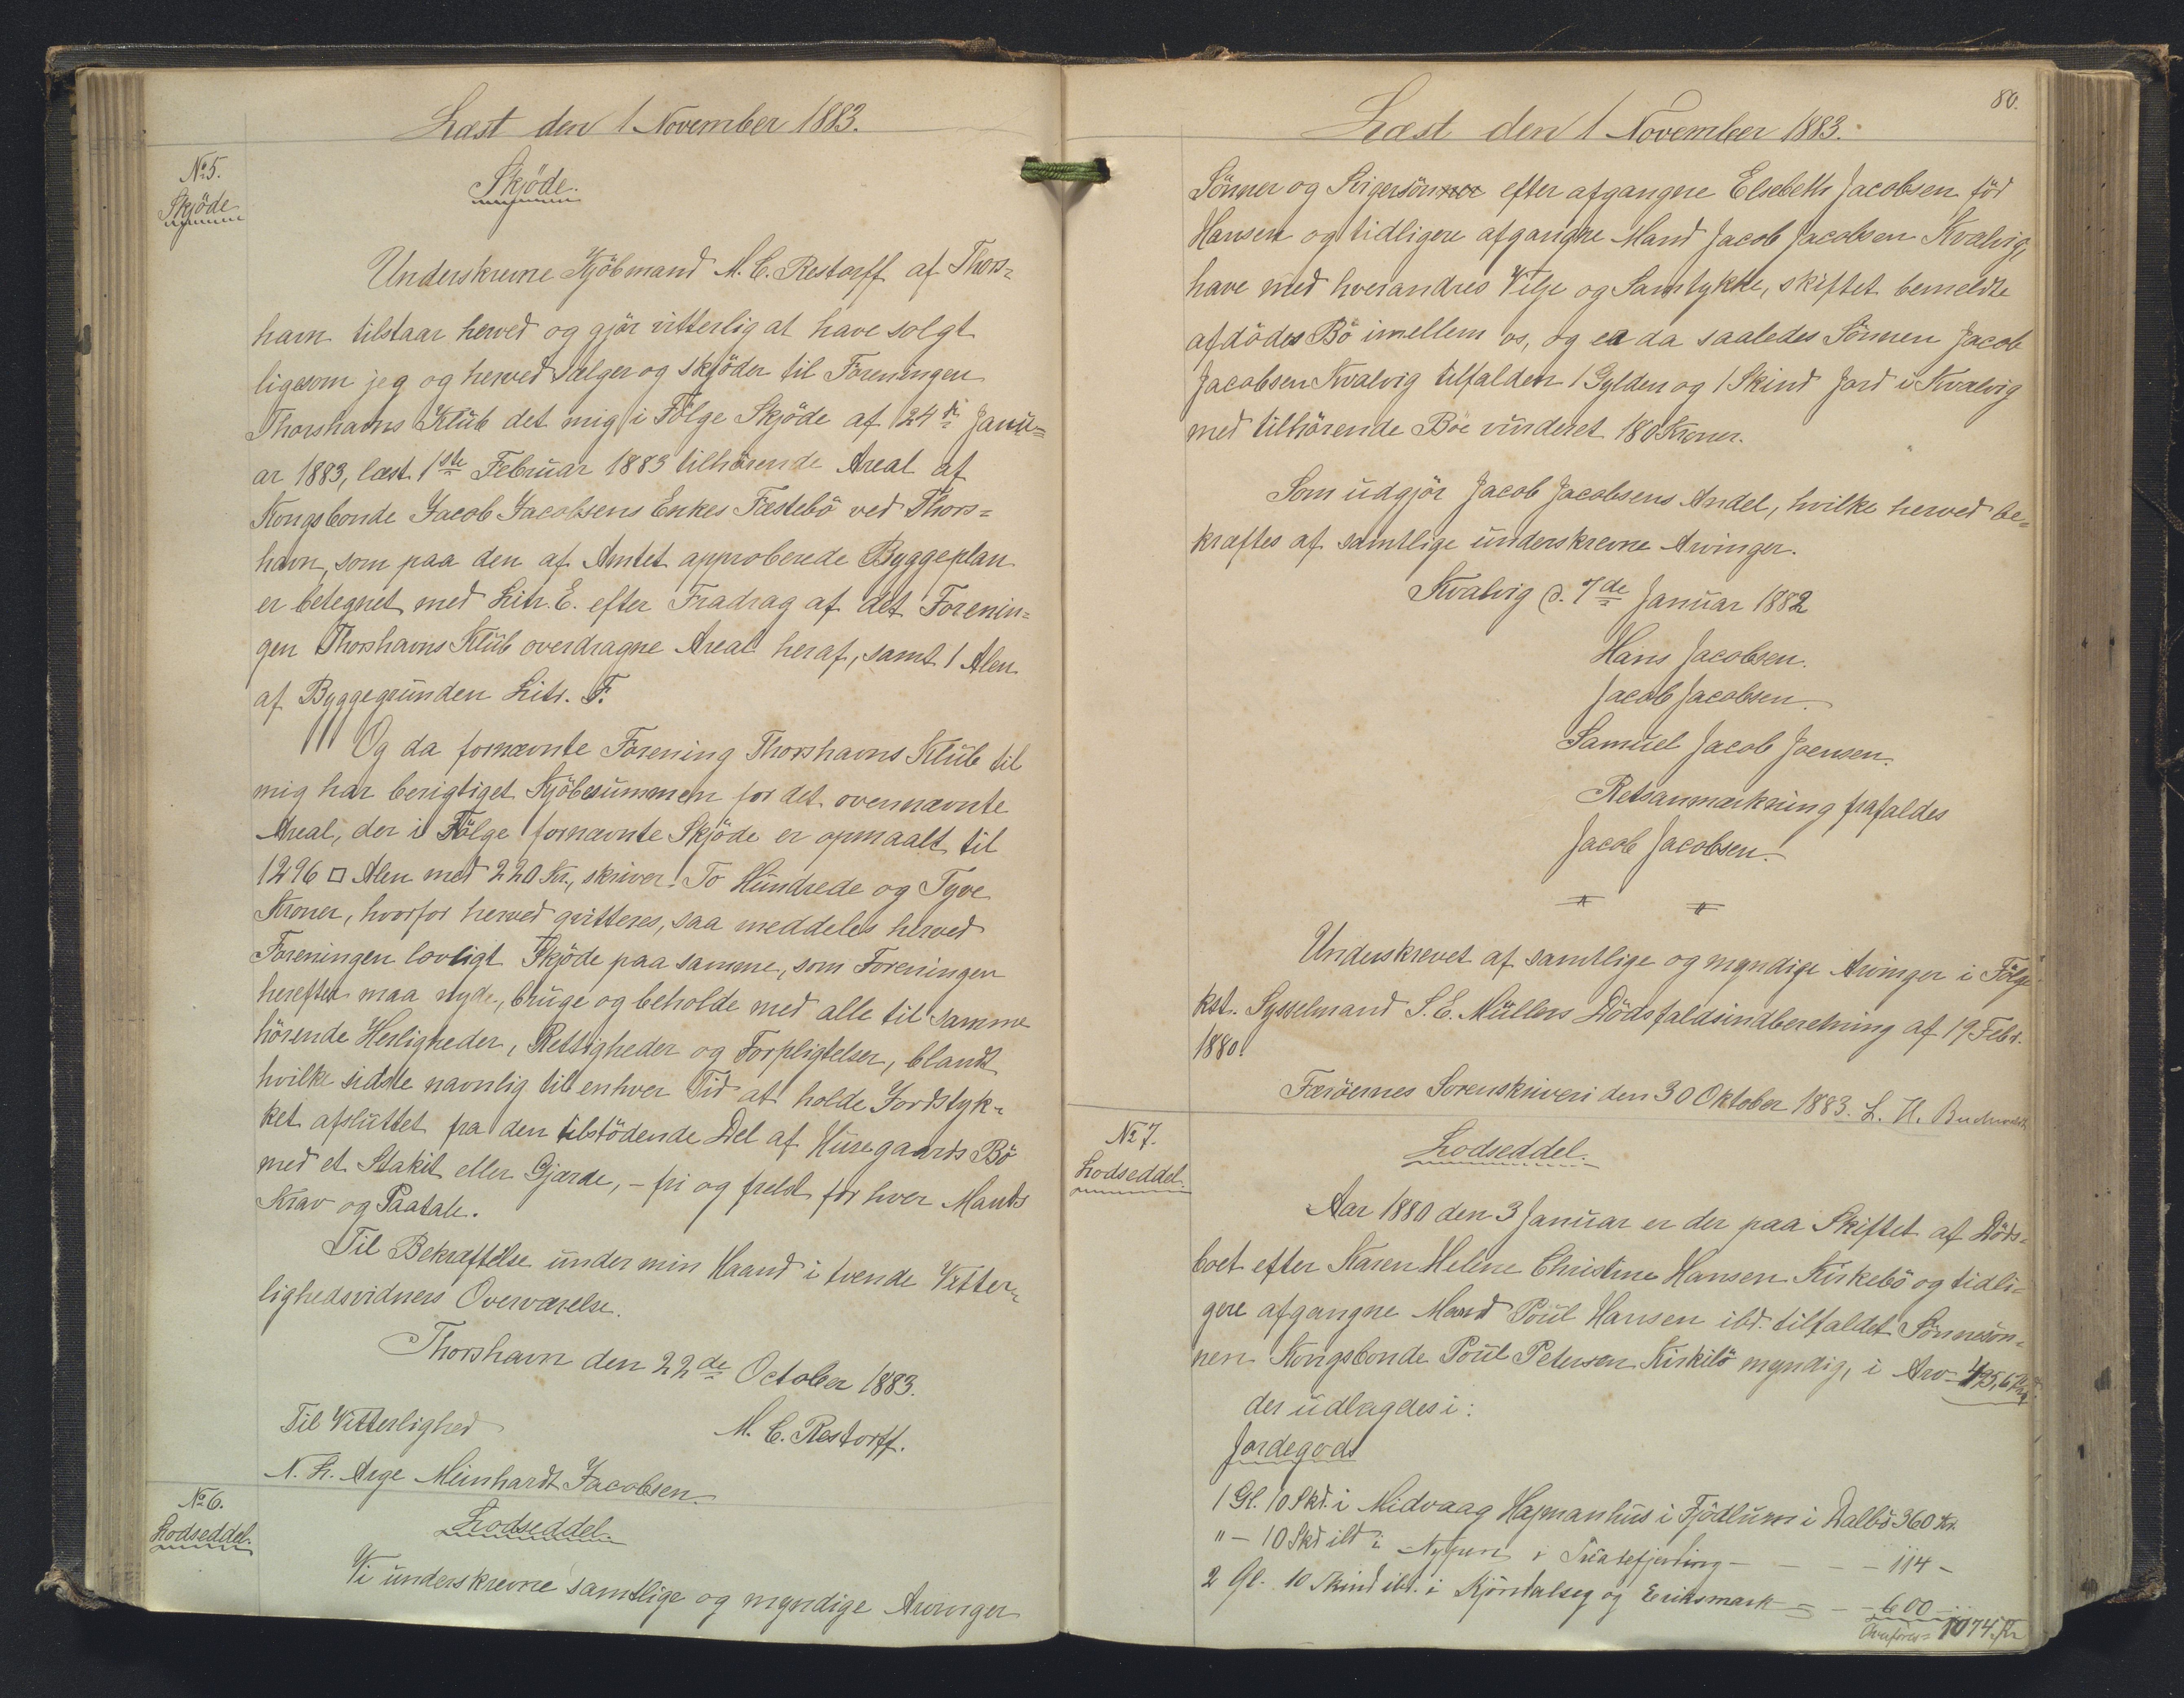 Læst den 1 November 1883.
No 5.
Skjöde
Skjöde.
Underskrevne Kjöbmand M. C. Restorff af Thors=
havn tilstaar herved og gjör vitterlig at have solgt
ligesom jeg og herved sælger og skjöder til Foreningen
Thorshavns Klub det mig i Fölge Skjöde af 24de Janu=
ar 1883, læst 1ste Februar 1883 tilhörende Areal af
Kongsbonde Jacob Jacobsens Enkes Fæstebö ved Thors=
havn, som paa den af Amtet approberede Byggeplan
er betegnet med Litr. E. efter Fradrag af det Forenin=
gen Thorshavns Klub overdragne Areal heraf, samt 1 Alen
af Byggegrunden Litr. F.
Og da fornævnte Forening Thorshavns Klub til
mig har berigtiget Kjöbesummen for det ovennævnte
Areal, der i Fölge fornævnte Skjöde er opmaalt til
1296 □ Alen med 220 Kr., skriver: To Hundrede og Tyve
Kroner, hvorfor herved qvitteres, saa meddeles herved
Foreningen lovligt Skjöde paa samme, som Foreningen
herefter maa nyde, bruge og beholde med alle til samme
hörende Herligheder, Rettigheder og Forpligtelser, blandt
hvilke sidste navnlig til enhver Tid at holde Jordstyk=
ket afsluttet fra den tilstödende Del af Husegaards Bö
med et Stakit eller Gjærde, - fri og frelst for hver Mands
Krav og Paatale.
Til Bekræftelse under min Haand i tvende Vitter=
lighedsvidners Overværelse.
Thorshavn den 22de October 1883.
Til Vitterlighed
M. C. Restorff.
N. H. Arge Meinhardt Jacobsen.
No 6.
Lodseddel.
Lodseddel.
Vi underskrevne samtlige og myndige Arvinger
80.
Læst den 1 November 1883.
Sönner og Svigersönner efter afgangne Elsebeth Jacobsen föd
Hansen og tidligere afgangne Mand Jacob Jacobsen Kvalvig,
have med hverandres Vilje og Samtykke, skiftet bemeldte
afdödes Bö imellem os, og er da saaledes Sönnen Jacob
Jacobsen Kvalvig tilfalden 1 Gylden og 1 Skind Jord i Kvalvig
med tilhörende Böe vurderet 180 Kroner.
Som udgjör Jacob Jacobsens Andel, hvilke herved be=
kræftes af samtlige underskrevne Arvinger.
Kvalvig d. 7de Januar 1882
Hans Jacobsen.
Jacob Jacobsen.
Samuel Jacob Joensen.
Retsanmærkning frafaldes
Jacob Jacobsen.
Underskrevet af samtlige og myndige Arvinger i Fölge
kst. Sysselmand S. E. Müllers Dödsfaldsindberetning af 19 Febr.
1880.
Færöernes Sorenskriveri den 30 Oktober 1883. L. U. Buchwaldt
No 7.
Lodseddel.
Lodseddel.
Aar 1880 den 3 Januar er der paa Skiftet af Döds=
boet efter Karen Helene Christine Hansen Kirkebö og tidli=
gere afgangne Mand Poul Hansen ibd. tilfaldet Sönnesön=
nen Kongsbonde Poul Petersen Kirkebö myndig, i Arv
der udlagdes i:
Jordegods
1 Gl. 10 Skd. i Midvaag Hajmanhus i Fjödlum i Dalbö 360 Kr.
" - 10 Skd ibd i - - - 114 -
2 Gl. 10 Skind ibd. i og Eriksmark = - - 600
Overföres = 1074 Kr